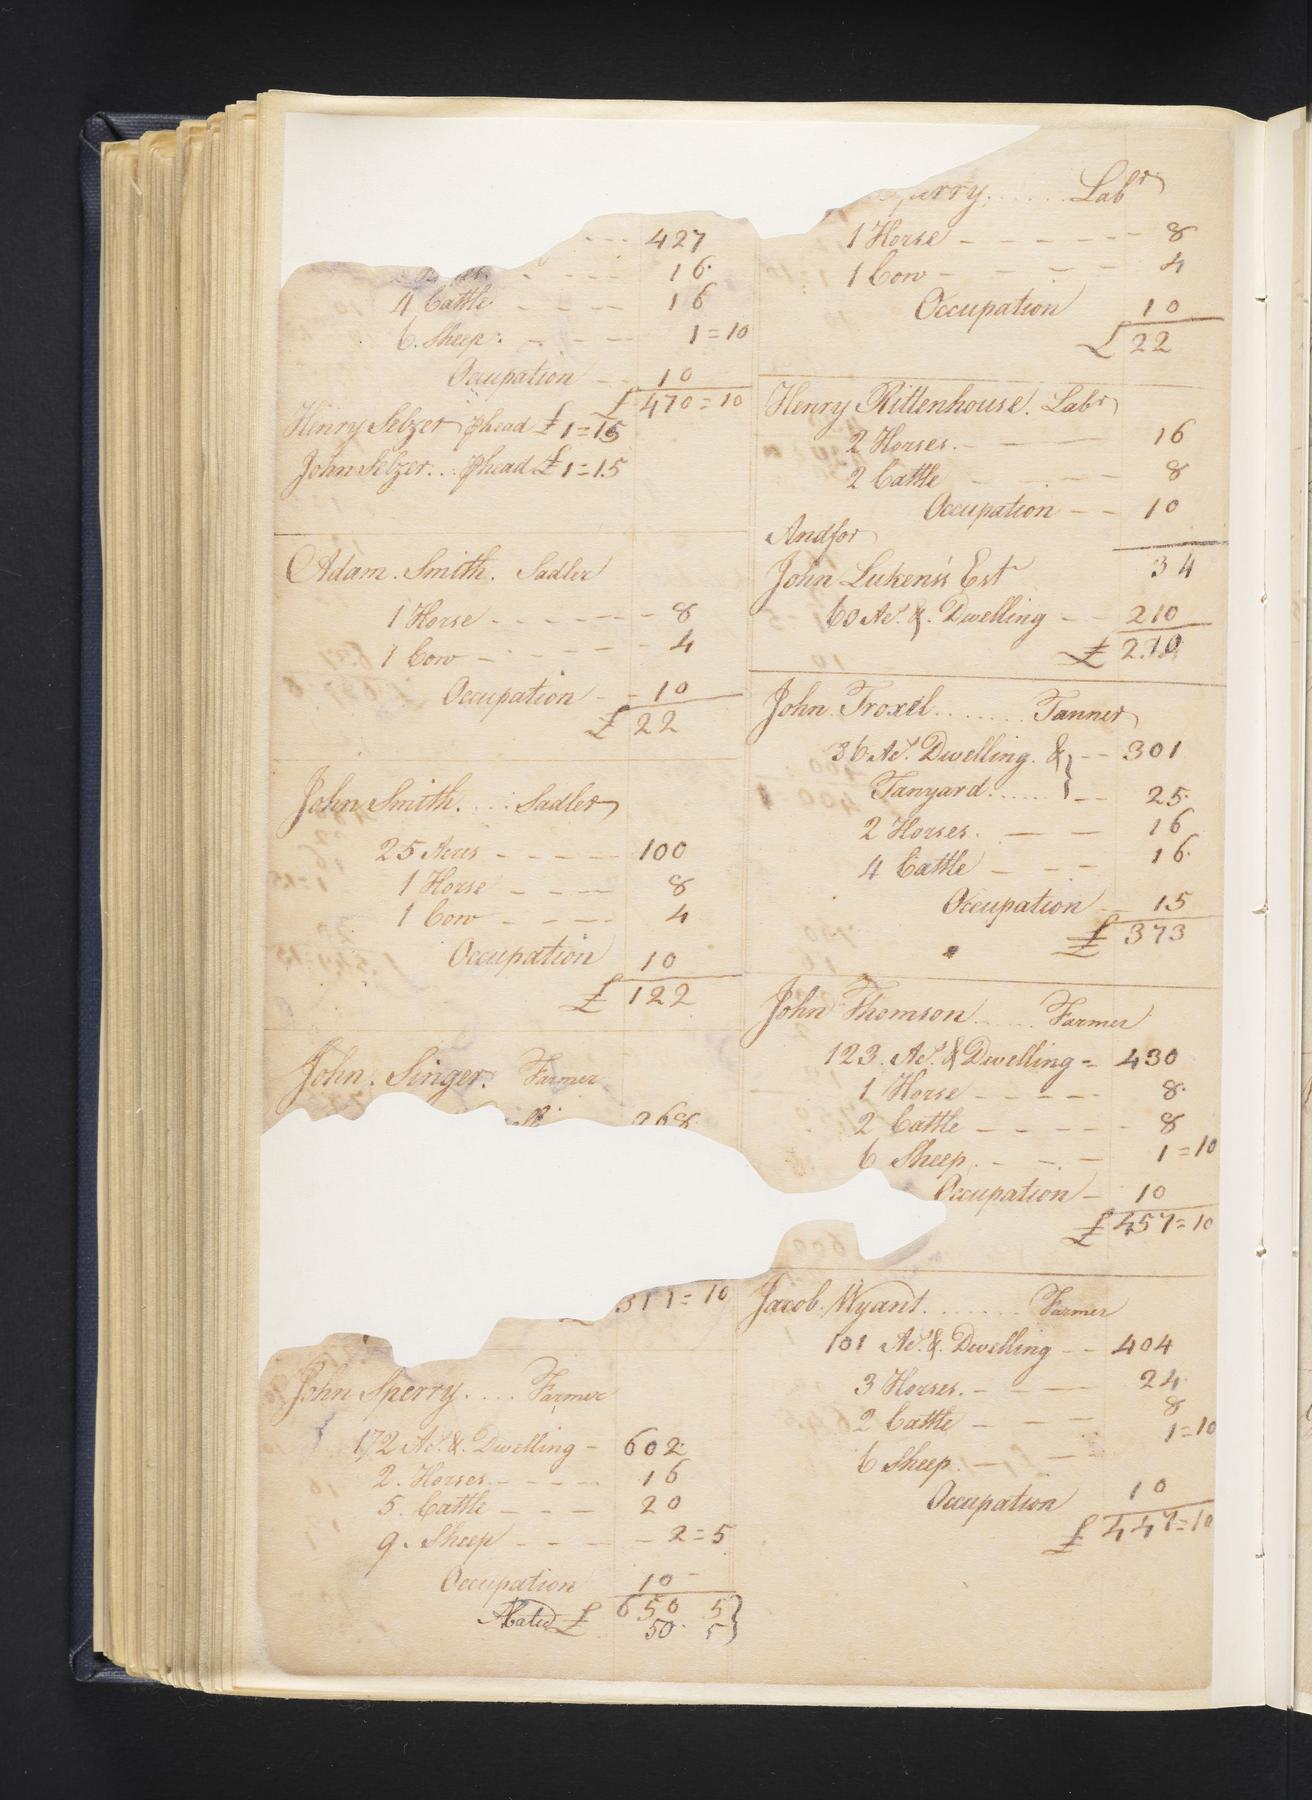 427
16
4 Cattle 16
6 Sheep 1=10
Occupation 10
£ 470=10
Henry Selzer ⅌ head £ 1=15
John Selzer ⅌ head £ 1=15
Adam Smith. Sadler
1 Horse 8
1 Cow 4
Occupation 10
£ 22
John Smith. Sadler
25 Acres 100
1 Horse 8
1 Cow 4
Occupation 10
£ 122
John. Singer. Farmer
268
311=10
John Sperry. Farmer
172 Ac.s & Dwelling 602
2 Horses 16
5 Cattle 20
9 Sheep 2=5
Occupation 10
Abated £ 650 5
50 5
Sperry. Labr
1 Horse 8
1 Cow 4
Occupation 10
£ 22
Henry Rittenhouse. Labr
2 Horses. 16
2 Cattle 8
Occupation 10
And for 34
John Lukens's Est
60 Ac.s & Dwelling 210
£
John Troxel Tanner
36 Ac.s Dwelling & 301
Tanyard 25
2 Horses. 16
4 Cattle 16
Occupation 15
£ 373
John Thomson Farmer
123 Ac.s & Dwelling 430
1 Horse 8
2 Cattle 8
6 Sheep 1=10
Occupation 10
£ 457=10
Jacob Wyant Farmer
101 Ac.s & Dwelling 404
3 Horses. 24
2 Cattle 8
6 Sheep. 1=10
Occupation 10
£ 447=10